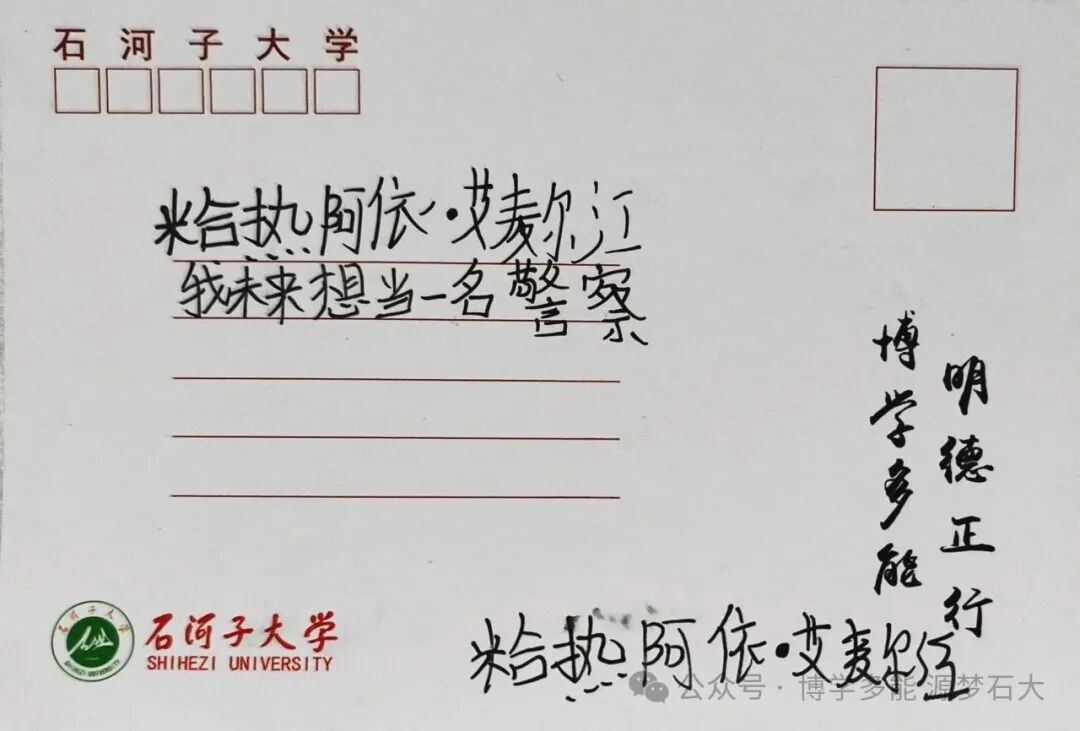 石河子大学
米合热阿依·艾麦尔江
我未来想当一名警察
明德正行
博学多能
石河子大学
SHIHEZI UNIVERSITY
石河子大学
SHIHEZI UNIVERSITY
米合热阿依·艾麦尔江
公众号·博学多能 源梦石大